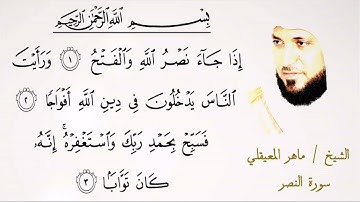 بِسْمِ ٱللَّهِ ٱلرَّحْمَٰنِ ٱلرَّحِيمِ
إِذَا جَآءَ نَصْرُ ٱللَّهِ وَٱلْفَتْحُ ١ وَرَأَيْتَ
ٱلنَّاسَ يَدْخُلُونَ فِى دِينِ ٱللَّهِ أَفْوَاجًا ٢
فَسَبِّحْ بِحَمْدِ رَبِّكَ وَٱسْتَغْفِرْهُ ۚ إِنَّهُۥ
كَانَ تَوَّابًۢا ٣
الشيخ / ماهر المعيقلي
سورة النصر